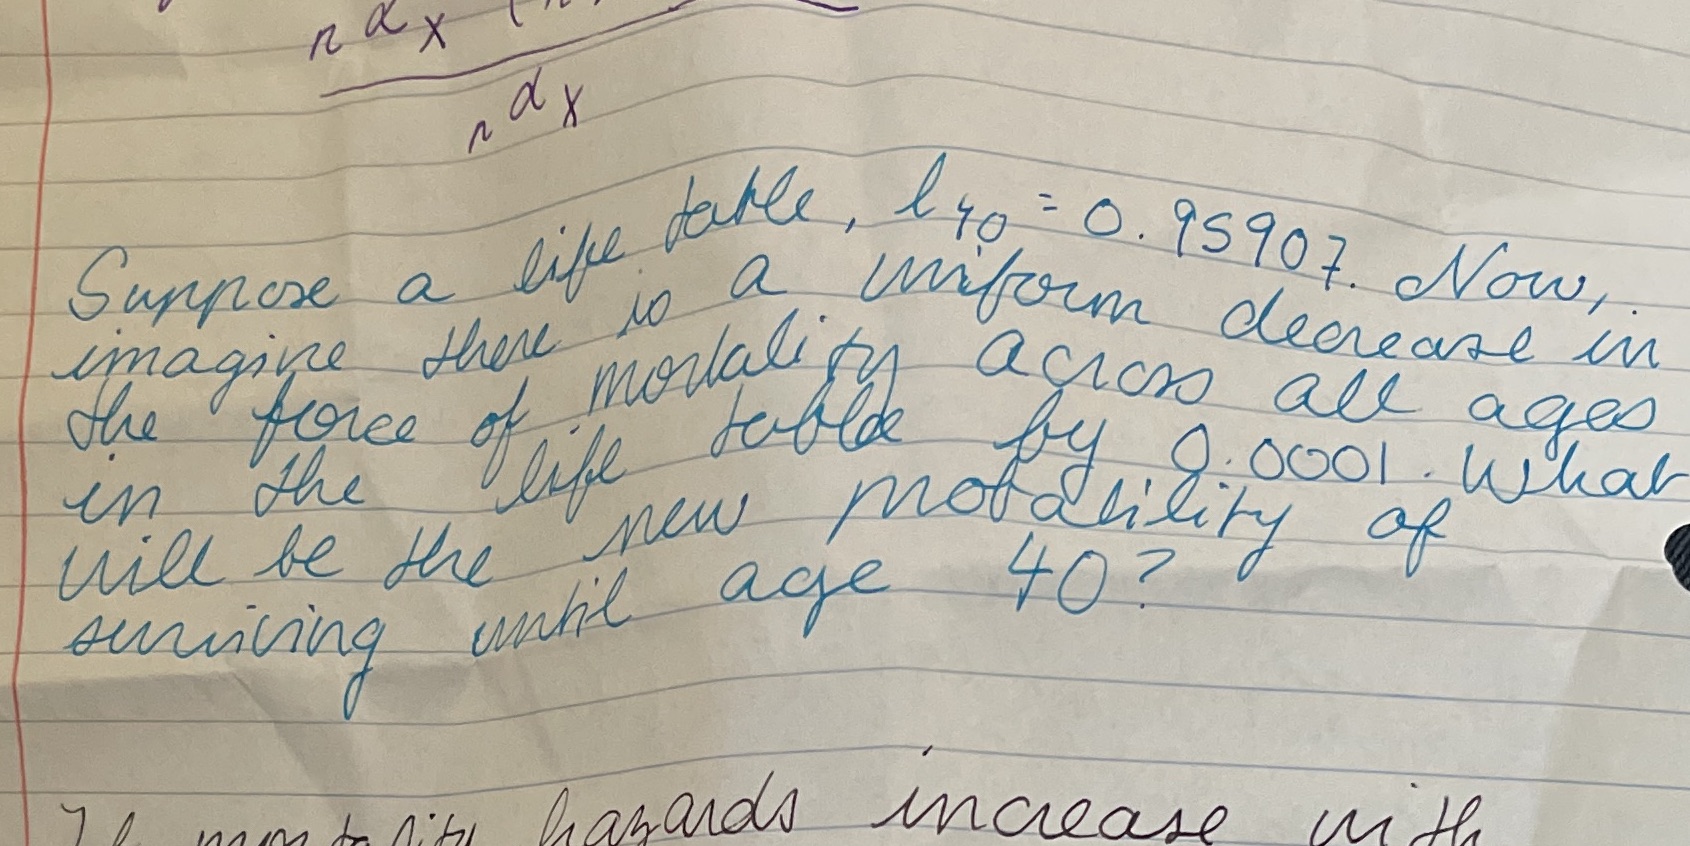 n d x
n d x
Suppose a life table, l40 = 0.95907. Now,
imagine there is a uniform decrease in
the force of mortality across all ages
in the life table by 0.0001. What
will be the new motability of
surviving until age 40?
hazards increase with